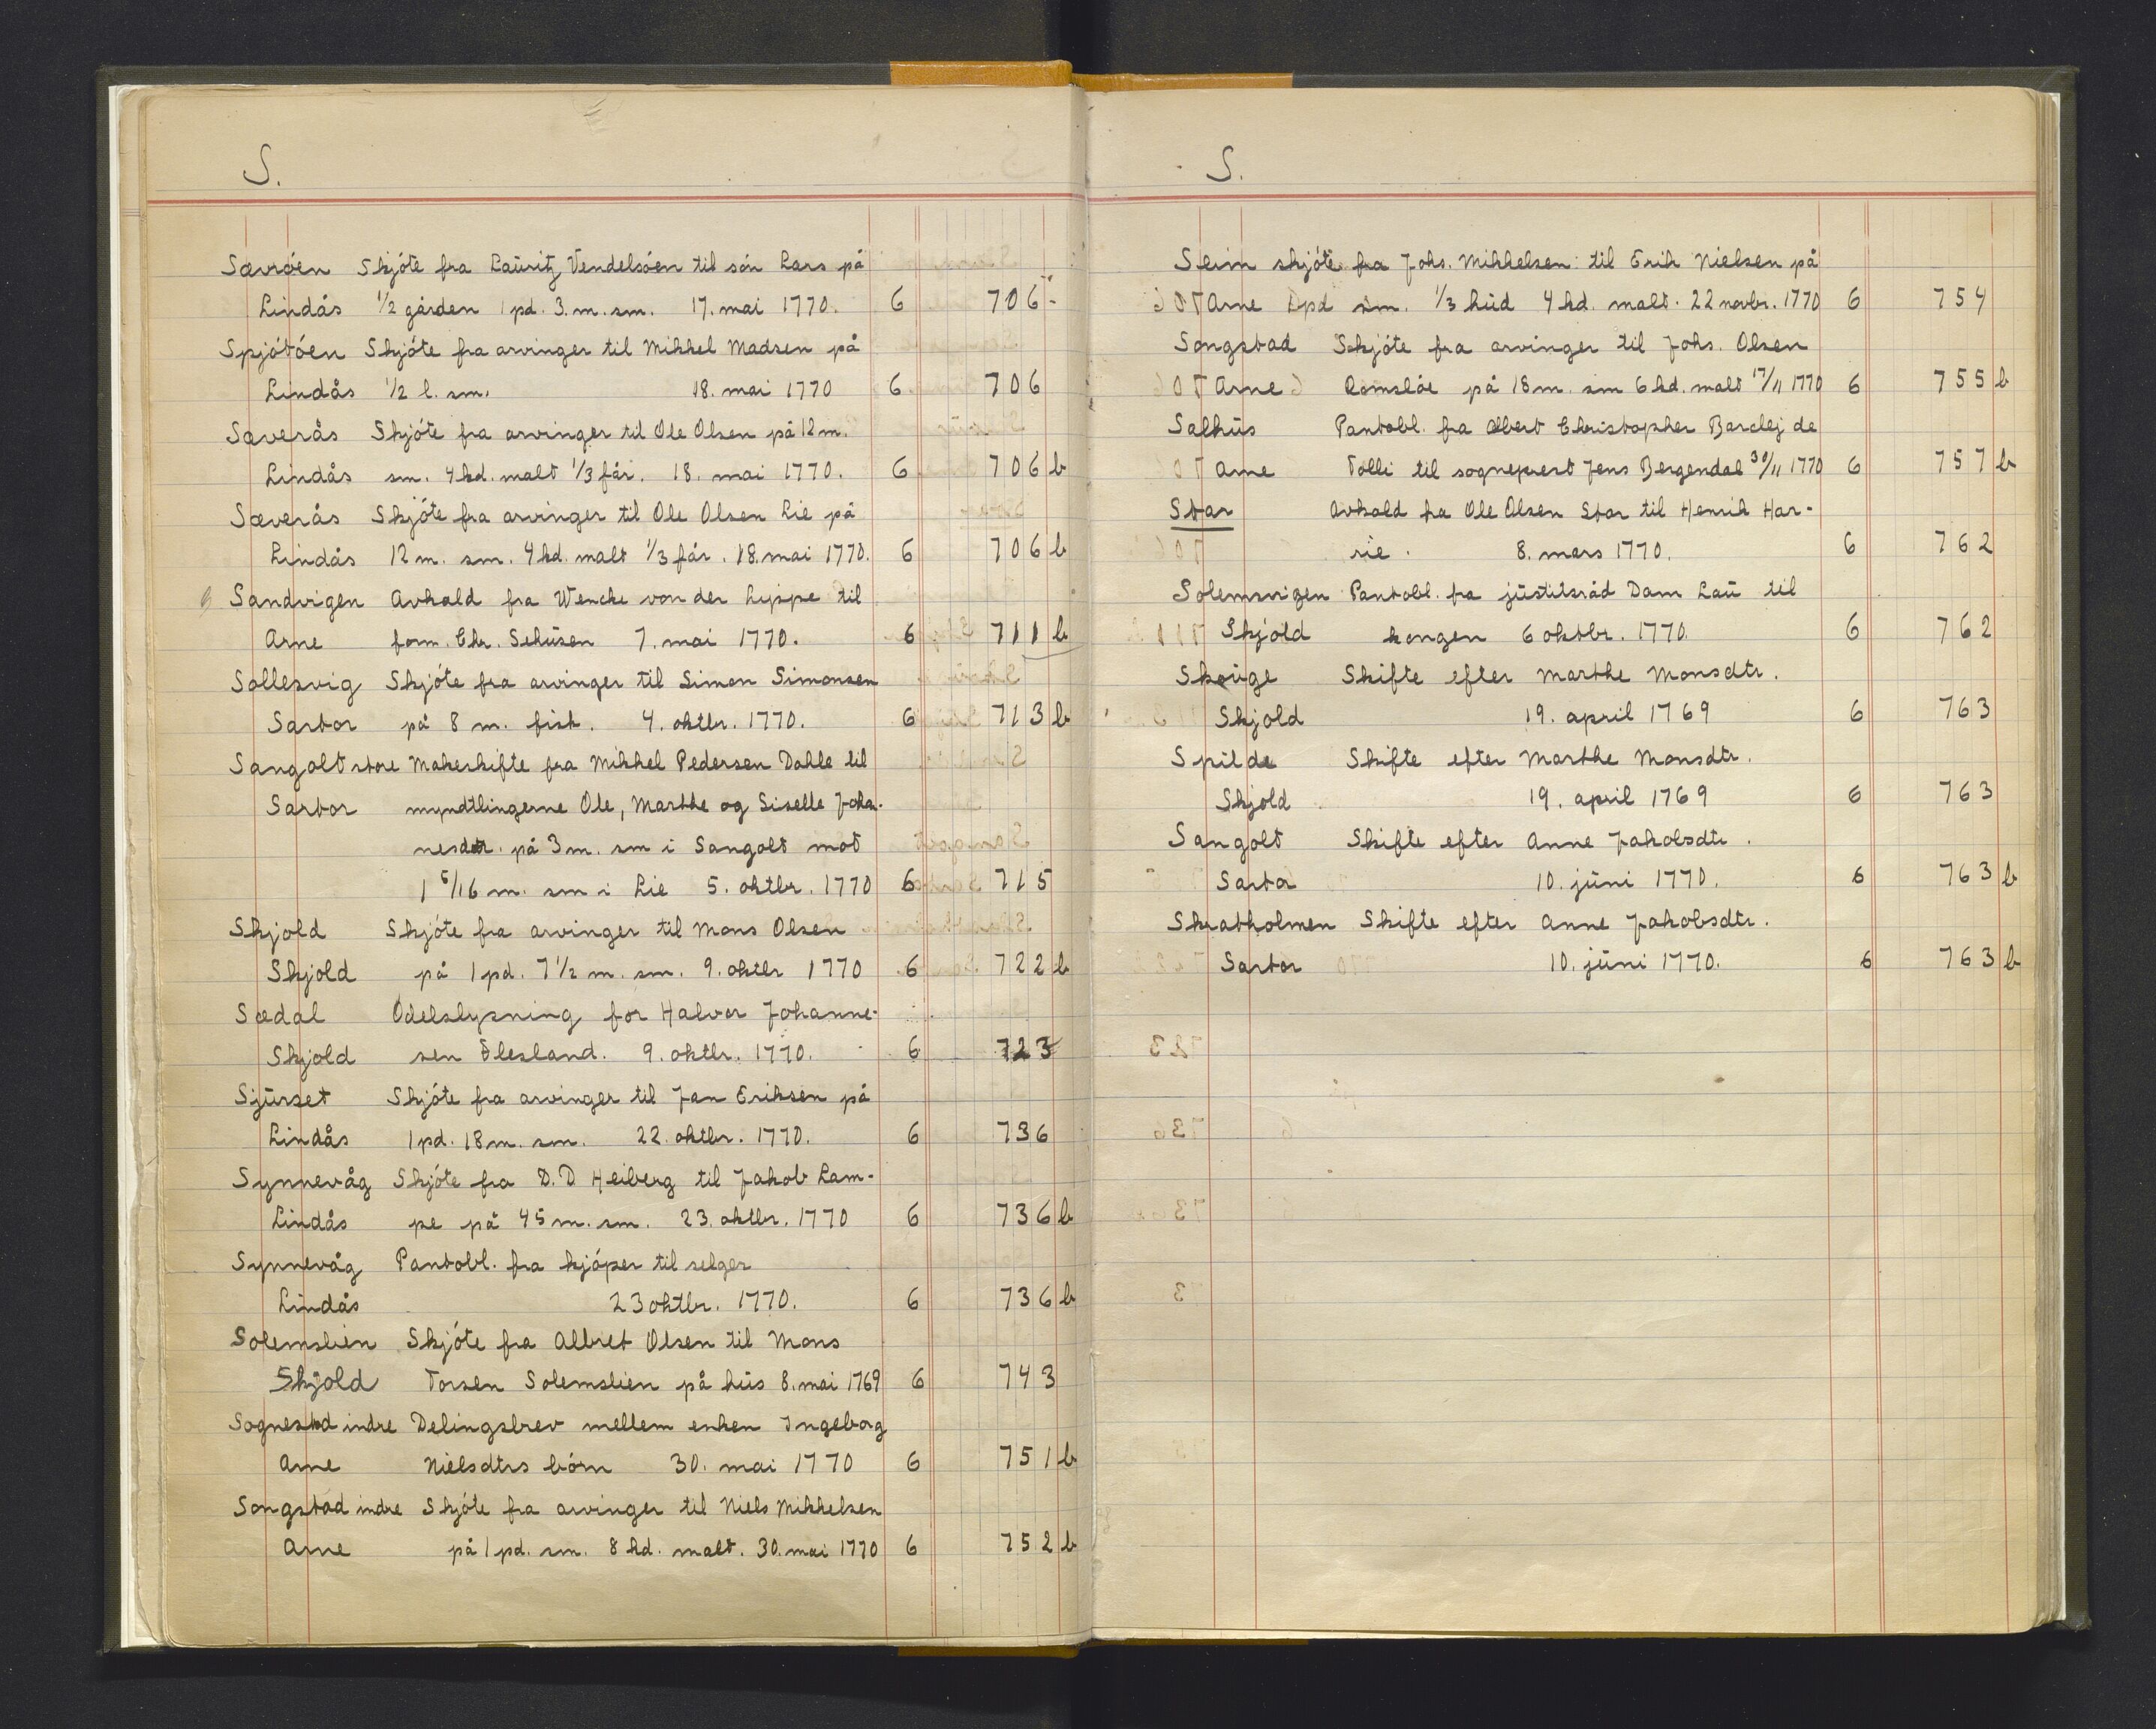 S.
Sævrøen Skjóte fra Lauritz Vendelsóen til són Lars på
Lindås 1/2 gården 1 pd. 3. m. sm. 17. mai 1770. 6 706
Spjótóen Skjóte fra arvinger til Mikkel Madsen på
Lindås 1/2 l. sm. 18. mai 1770 6 706
Sæverås Skjóte fra arvinger til Ole Olsen på 12 m.
Lindås sm. 4 kd. malt 1/3 får. 18. mai 1770. 6 706 b
Sæverås Skjóte fra arvinger til Ole Olsen Lie på
Lindås 12 m. sm. 4 kd. malt 1/3 får. 18. mai 1770. 6 706 b
Sandvigen Avkald fra Wencke von der Lyppe til
Arne form. Chr. Sehusen 7. mai 1770. 6 711 b
Sollesvig Skjóte fra arvinger til Simon Simonsen
Sartor på 8 m. fisk. 4. oktbr. 1770. 6 713 b
Sangolt store Makeskifte fra Mikkel Pedersen Dahle til
Sartor myndtlingerne Ole, Marthe og Siselle Joha-
nesdtr. på 3 m. sm i Sangolt mot
1 5/16 m. sm i Lie 5. oktbr. 1770 6 715
Skjold Skjóte fra arvinger til Mons Olsen
Skjold på 1 pd. 7 1/2 m. sm. 9. oktbr 1770 6 722 b
Sædal Odelslysning for Halvor Johanne-
Skjold sen Ølesland. 9. oktbr. 1770. 6 723
Sjurset Skjóte fra arvinger til Jan Eriksen på
Lindås 1 pd. 18 m. sm. 22. oktbr. 1770. 6 736
Synnevåg Skjóte fra D.D Heiberg til Jakob Lam-
Lindås pe på 45 m. sm. 23. oktbr. 1770 6 736 b
Synnevåg Pantobl. fra kjóper til selger
Lindås 23 oktbr. 1770. 6 736 b
Solemslien Skjóte fra Albret Olsen til Mons
Skjold Torsen Solemslien på hus 8. mai 1769 6 743
Sognestad indre Delingsbrev mellem enken Ingeborg
Arne Nielsdtrs bórn 30. mai 1770 6 751 b
Songstad indre Skjóte fra arvinger til Niels Mikkelsen
Arne på 1 pd. sm. 8 kd. malt. 30. mai 1770 6 752 b
S.
Seim skjóte fra Johs. Mikkelsen til Erik Nielsen på
Arne 1 pd sm. 1/3 hud 4 kd. malt. 22 novbr. 1770 6 754
Songstad Skjóte fra arvinger til Johs. Olsen
Arne Romslóe på 18 m. sm 6 kd. malt 17/11 1770 6 755 b
Salhus Pantobl. fra Albert Christopher Barclej de
Arne Tolli til sogneprest Jens Bergendal 30/11 1770 6 757 b
Star Avkald fra Ole Olsen Star til Henrik Har-
rie. 8. mars 1770. 6 762
Solemsvigen Pantobl. fra justitsråd Dam Lau til
Skjold kongen 6 oktbr. 1770. 6 762
Skeige Skifte efter Marthe Monsdtr.
Skjold 19. april 1769 6 763
Spilde Skifte efter Marthe Monsdtr.
Skjold 19. april 1769 6 763
Sangolt Skifte efter Anne Jakobsdtr.
Sartor 10. juni 1770. 6 763 b
Skratholmen Skifte efter Anne Jakobsdtr.
Sartor 10. juni 1770. 6 763 b